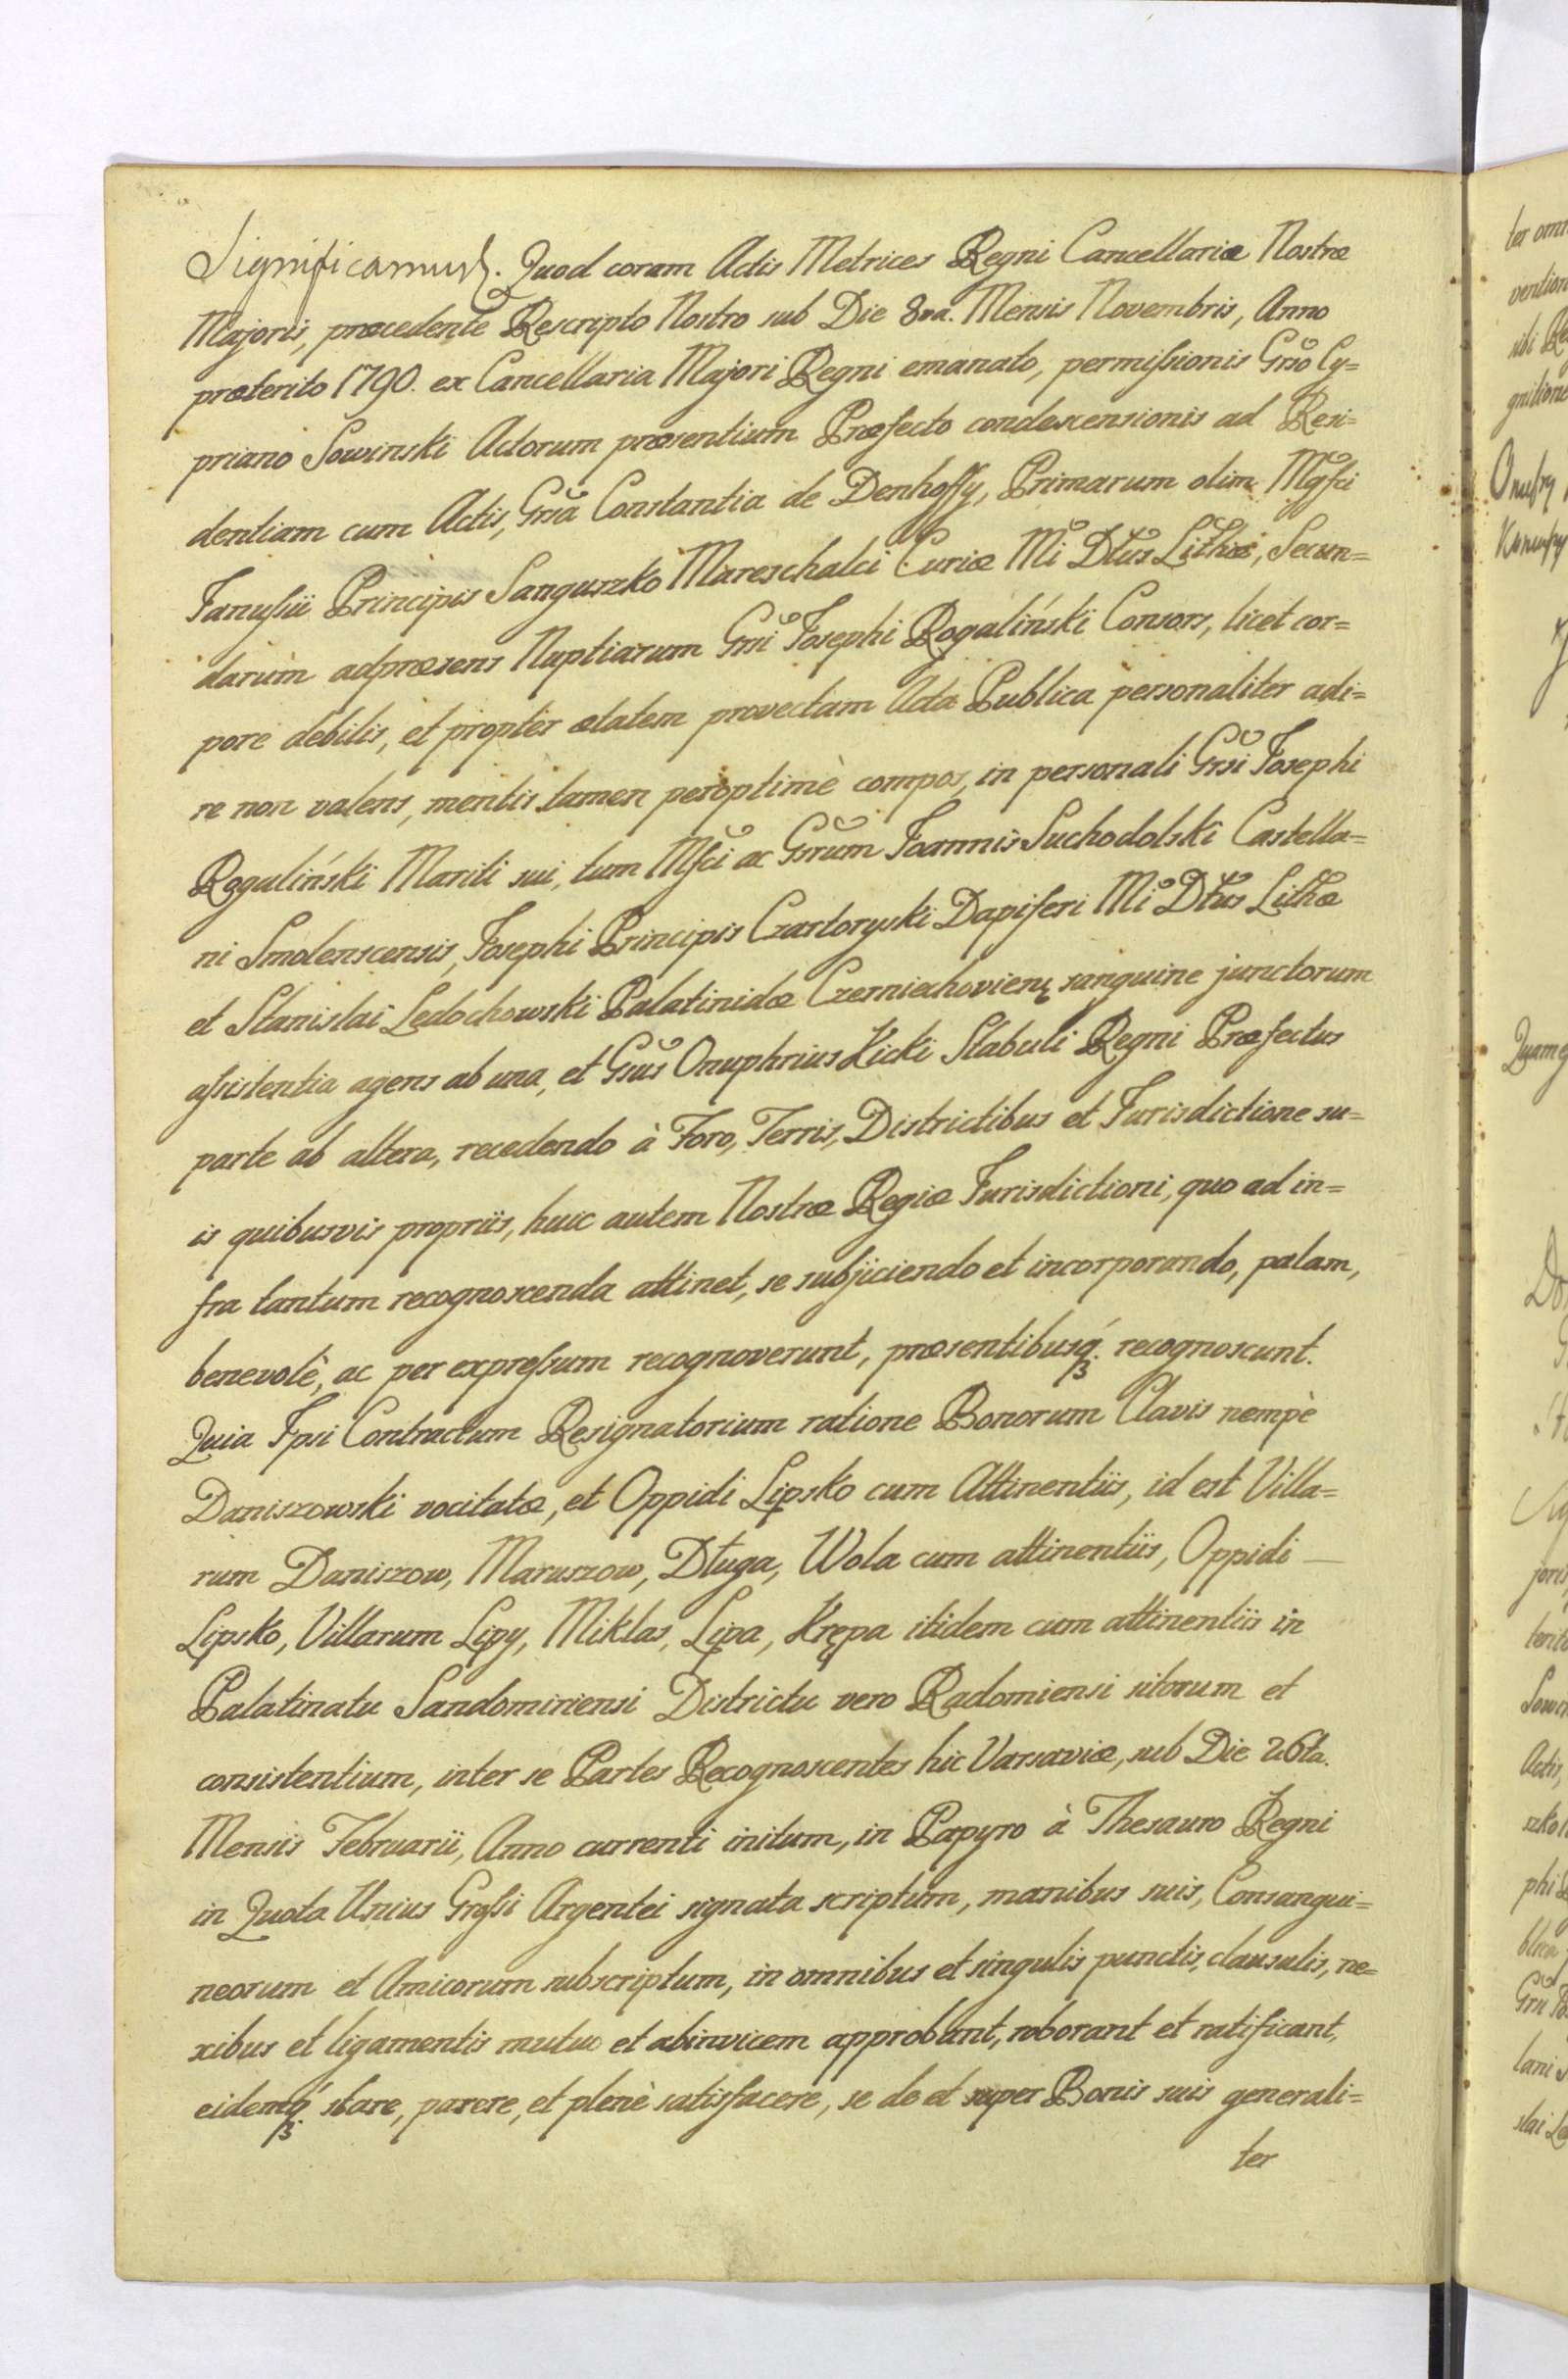 Significamus. Quod coram Actis Metrices Regni Cancellariæ Nostræ
Majoris, præcedente Rescripto Nostro sub Die 8va. Mensis Novembris, Anno
præterito 1790. ex Cancellaria Majori Regni emanato, permissionis Grso Cy=
priano Sowinski Actorum præsentium Præfecto condescensionis ad Resi=
dentiam cum Actis, Grsa Constantia de Denhoffy, Primarum olim Mgfci
Janussii Principis Sanguszko Mareschalci Curiæ Mi Dtus Lithæ, Secun=
darum adpræsens Nuptiarum Grsi Josephi Rogaliński Consors, licet cor=
pore debilis, et propter ætatem provectam Acta Publica personaliter adi=
re non valens, mentis tamen peroptimè compos, in personali Grsi Josephi
Rogaliński Mariti sui, tum Mfci ac Gsrum Joannis Suchodolski Castella=
ni Smolenscensis, Josephi Principis Czartoryski Dapiferi Mi Dtus Lithæ
et Stanislai Ledochowski Palatinidæ Czerniechovien, sanguine junctorum
assistentia agens ab una, et Gsus Onuphrius Kicki Stabuli Regni Præfectus
parte ab altera, recedendo à Foro, Terris, Districtibus et Jurisdictione su=
is quibusvis propriis, huic autem Nostræ Regiæ Jurisdictioni, quo ad in=
fra tantum recognoscenda attinet, se subjiciendo et incorporando, palam,
benevolè, ac per expressum recognoverunt, præsentibusq. recognoscunt.
Quia Ipsi Contractum Resignatorium ratione Bonorum Clavis nempè
Daniszowski vocitatæ, et Oppidi Lipsko cum Attinentiis, id est Villa=
rum Daniszow, Maruszow, Długa, Wola cum attinentiis, Oppidi —
Lipsko, Villarum Lipy, Miklas, Lipa, Krępa itidem cum attinentiis in
Palatinatu Sandomiriensi Districtu vero Radomiensi sitorum et
consistentium, inter se Partes Recognoscentes hic Varsaviæ, sub Die 26ta.
Mensis Februarii, Anno currenti initum, in Papyro à Thesauro Regni
in Quota Unius Grossi Argentei signata scriptum, manibus suis, Consangui=
neorum et Amicorum subscriptum, in omnibus et singulis punctis, clausulis, ne=
xibus et ligamentis mutuo et abinvicem approbant, roborant et ratificant,
eidemq. stare, parere, et plenè satisfacere, se de et super Bonis suis generali=
ter